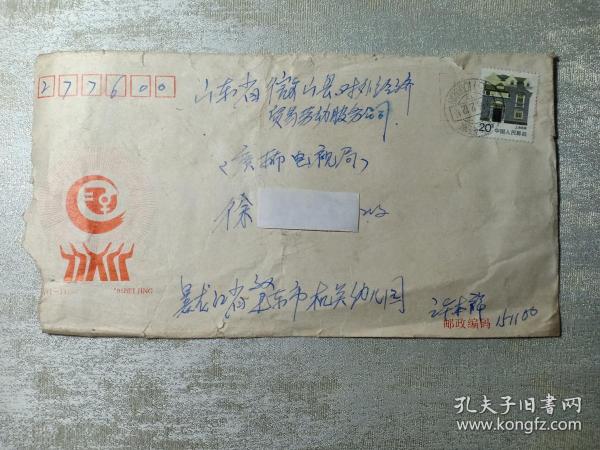 277600
山东省微山县对外经济
贸易劳动服务公司
(广播电视局)
徐 收
20分
中国人民邮政
'95BEIJING
黑龙江省肇东市机关幼儿园
邮政编码 151100
孔夫子旧书网
www.kongfz.com